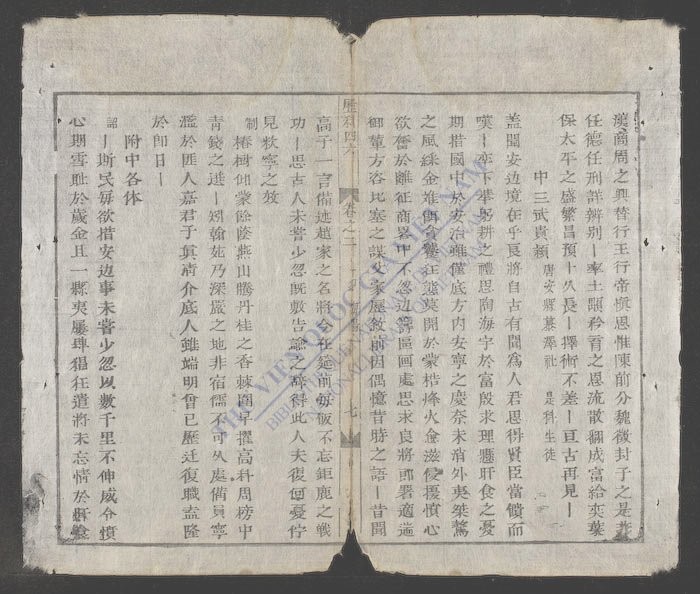 漢商周之興替行王行帝慎思惟陳前分魏徵封子之是非
任德任刑詳辨別丨率土賜矜育之恩流散獨成富給夾葉
保太平之盛繁昌預丨久長丨擇術不差丨亘古再見丨
中三武貴穎 唐安縣慕澤社 是科生徒
盖聞安边境在乎良將自古有聞為人君思得賢臣當饋而
嘆丨 躬耕之禮恩陶海宇於富殷求理懸肝食之憂
期措國中於安治雖僅底方内安寧之慶奈未消外夷桀驁
之風 狂態莫開於蒙梏烽火侵擾慎心
欲奮於雕征商畧中不忽边籌區画處思求良將郎署適遄
御輦方咨比塞之謀父家屢敘前因偶憶昔時之語丨昔聞
歷科四六 卷之二 七
高于一言備述趙家之名將丨在筵前每飯不忘鉅鹿之戰
功丨思古人未嘗少忽既敷告諭之辭得此人夫復何憂佇
見敉寧之效
制 椿樹仰蒙餘蔭燕山騰丹桂之香棘圍早擢高科周榜中
青錢之選丨矧翰苑乃深嚴之地非宿儒不可以處備員寧
濫於匪人嘉君子真清介底人雖端明曾已歷廷復職盍隆
於即日丨
附中各体
詔 丨斯民每欲措安边事未嘗少忽以數千里不伸威令憤
心期雪耻於歲金且一縣夷屢肆猖狂遣將未忘情於肝
THƯ VIỆN QUỐC GIA VIỆT NAM